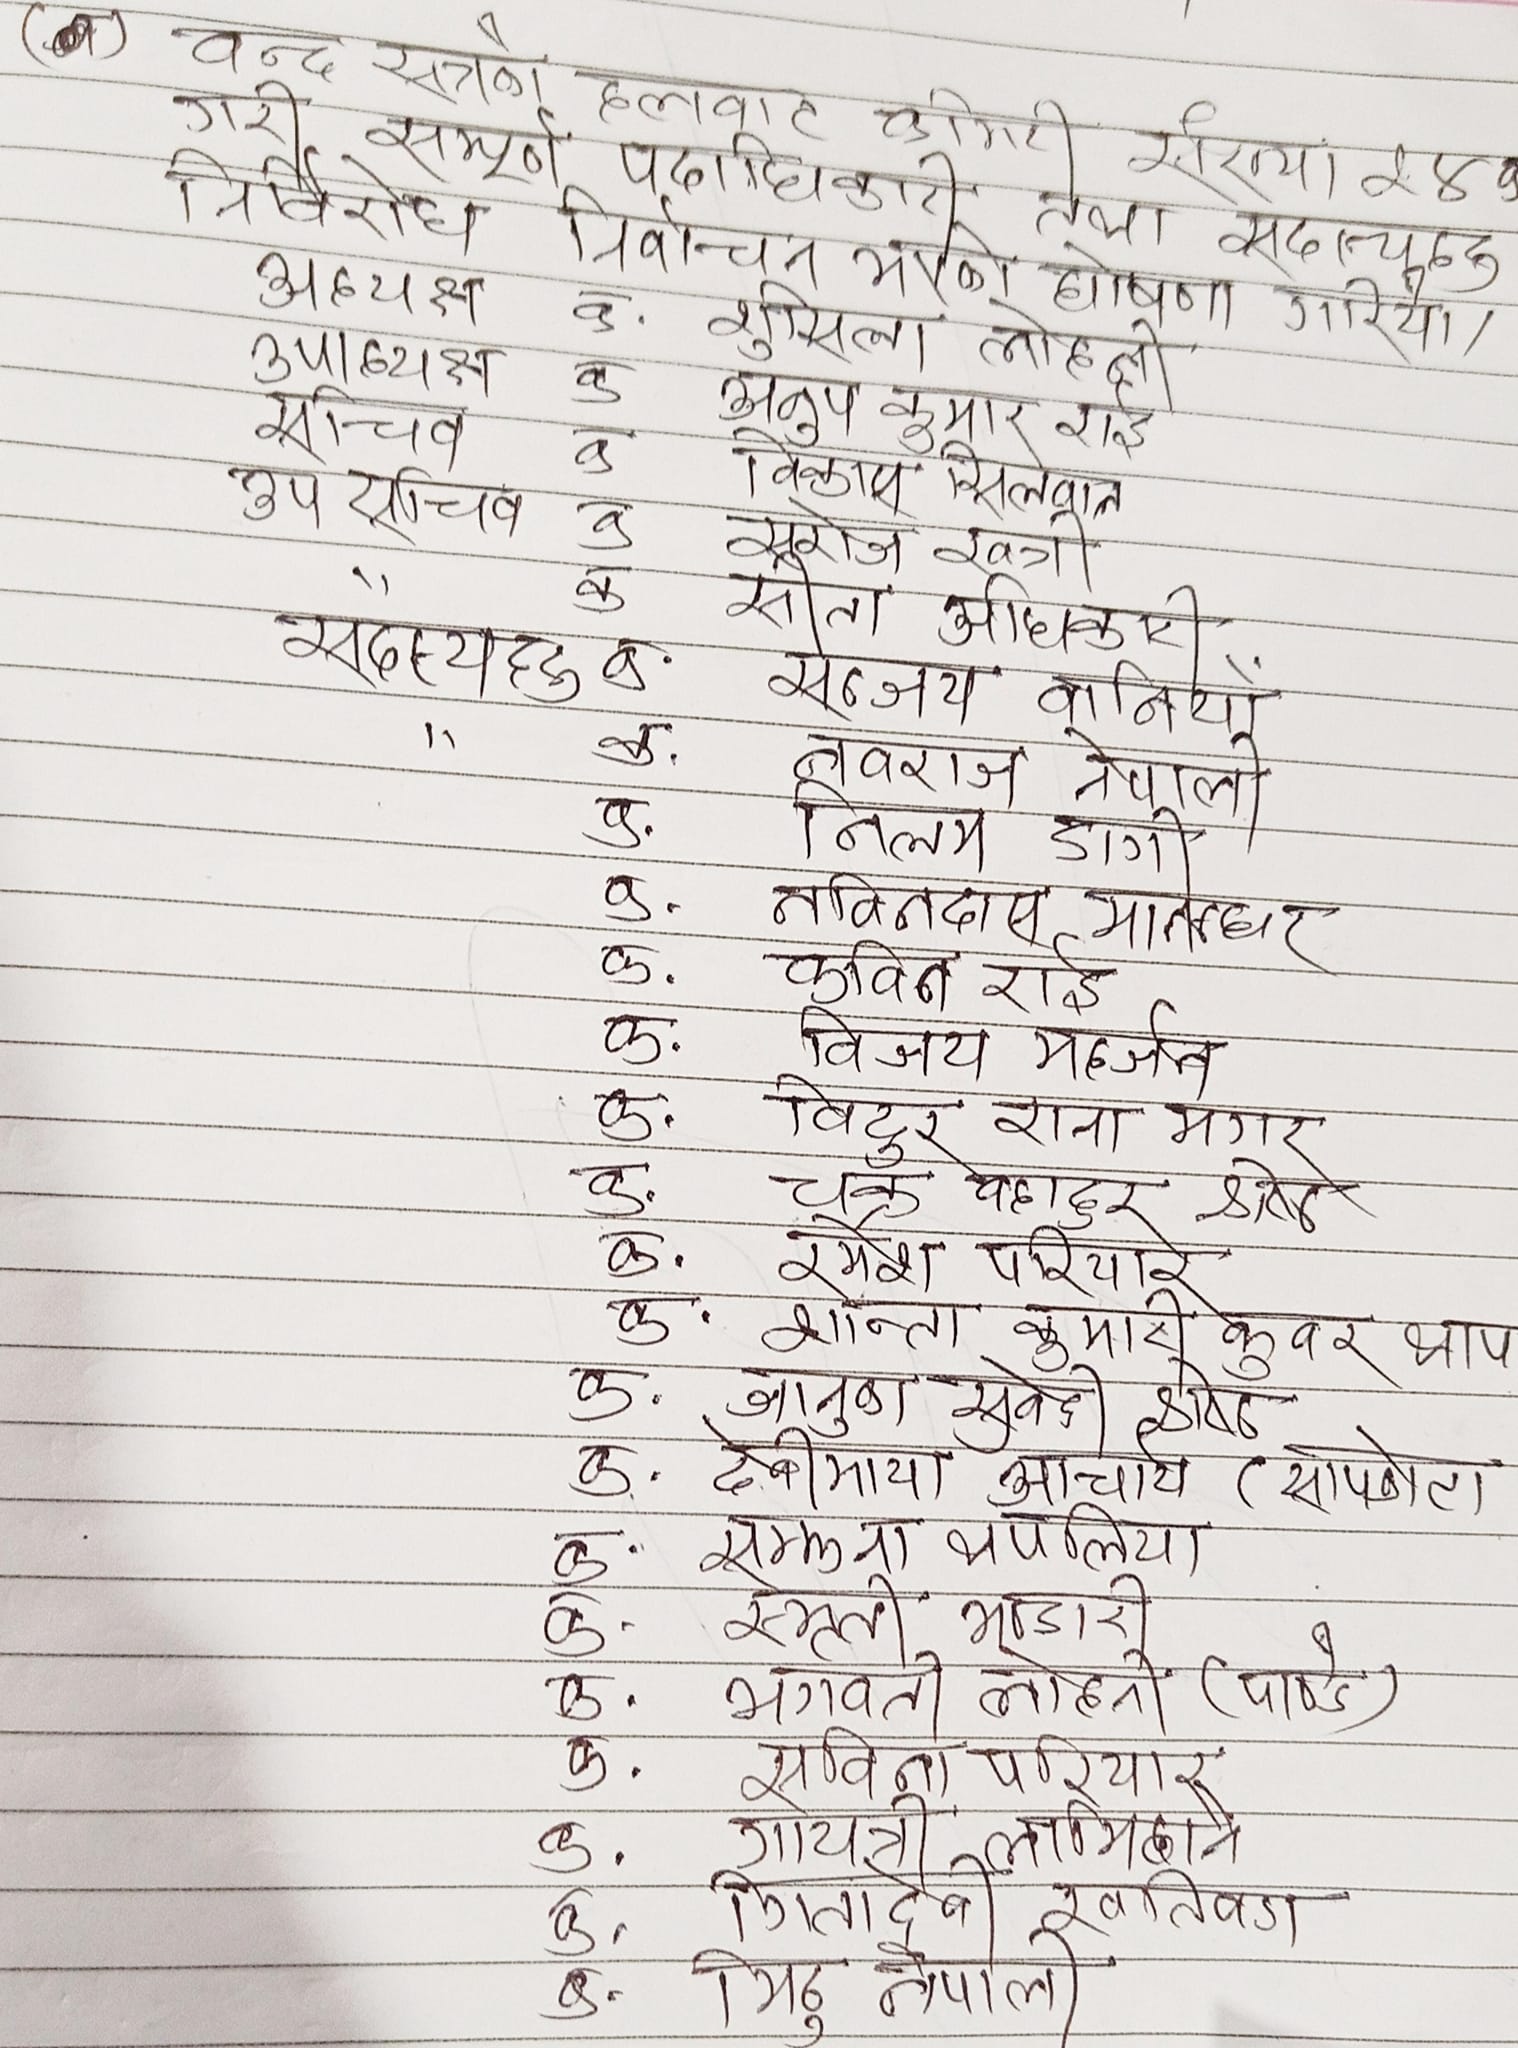 वन्द सत्रको हलवाट कमिटी संख्या २४
गरी सम्पूर्ण पदाधिकारी तथा सदस्यहरु
निर्विरोध निर्वाचन भएको घोषणा गरियो।
अध्यक्ष क. शुसिला लोहनी
उपाध्यक्ष क अनुप कुमार राई
सचिव क विकास सिलवाल
उप सचिव क सरोज खत्री
" क सीता अधिकारी
सदस्यहरु क. सन्जय वानियाँ
" क. नवराज नेपाली
क. निलम डागी
क. नविनदास मानन्धर
क. कविन राई
क. विजय महर्जन
क. विदुर राना मगर
क. चक्र वहादुर श्रेष्ठ
क. रमेश परियार
क. शान्ता कुमारी कुवर थाप
क. जानुका सुवेदी श्रेष्ठ
क. देवीमाया आचार्य (सापकोटा
क. सम्झना थपलिया
क. स्मृती भण्डारी
क. भगवती लोहनी (पाण्डे)
क. सविना परियार
क. गायत्री लामिछाने
क. गितादेवी खतिवडा
क. मिठु नेपाली